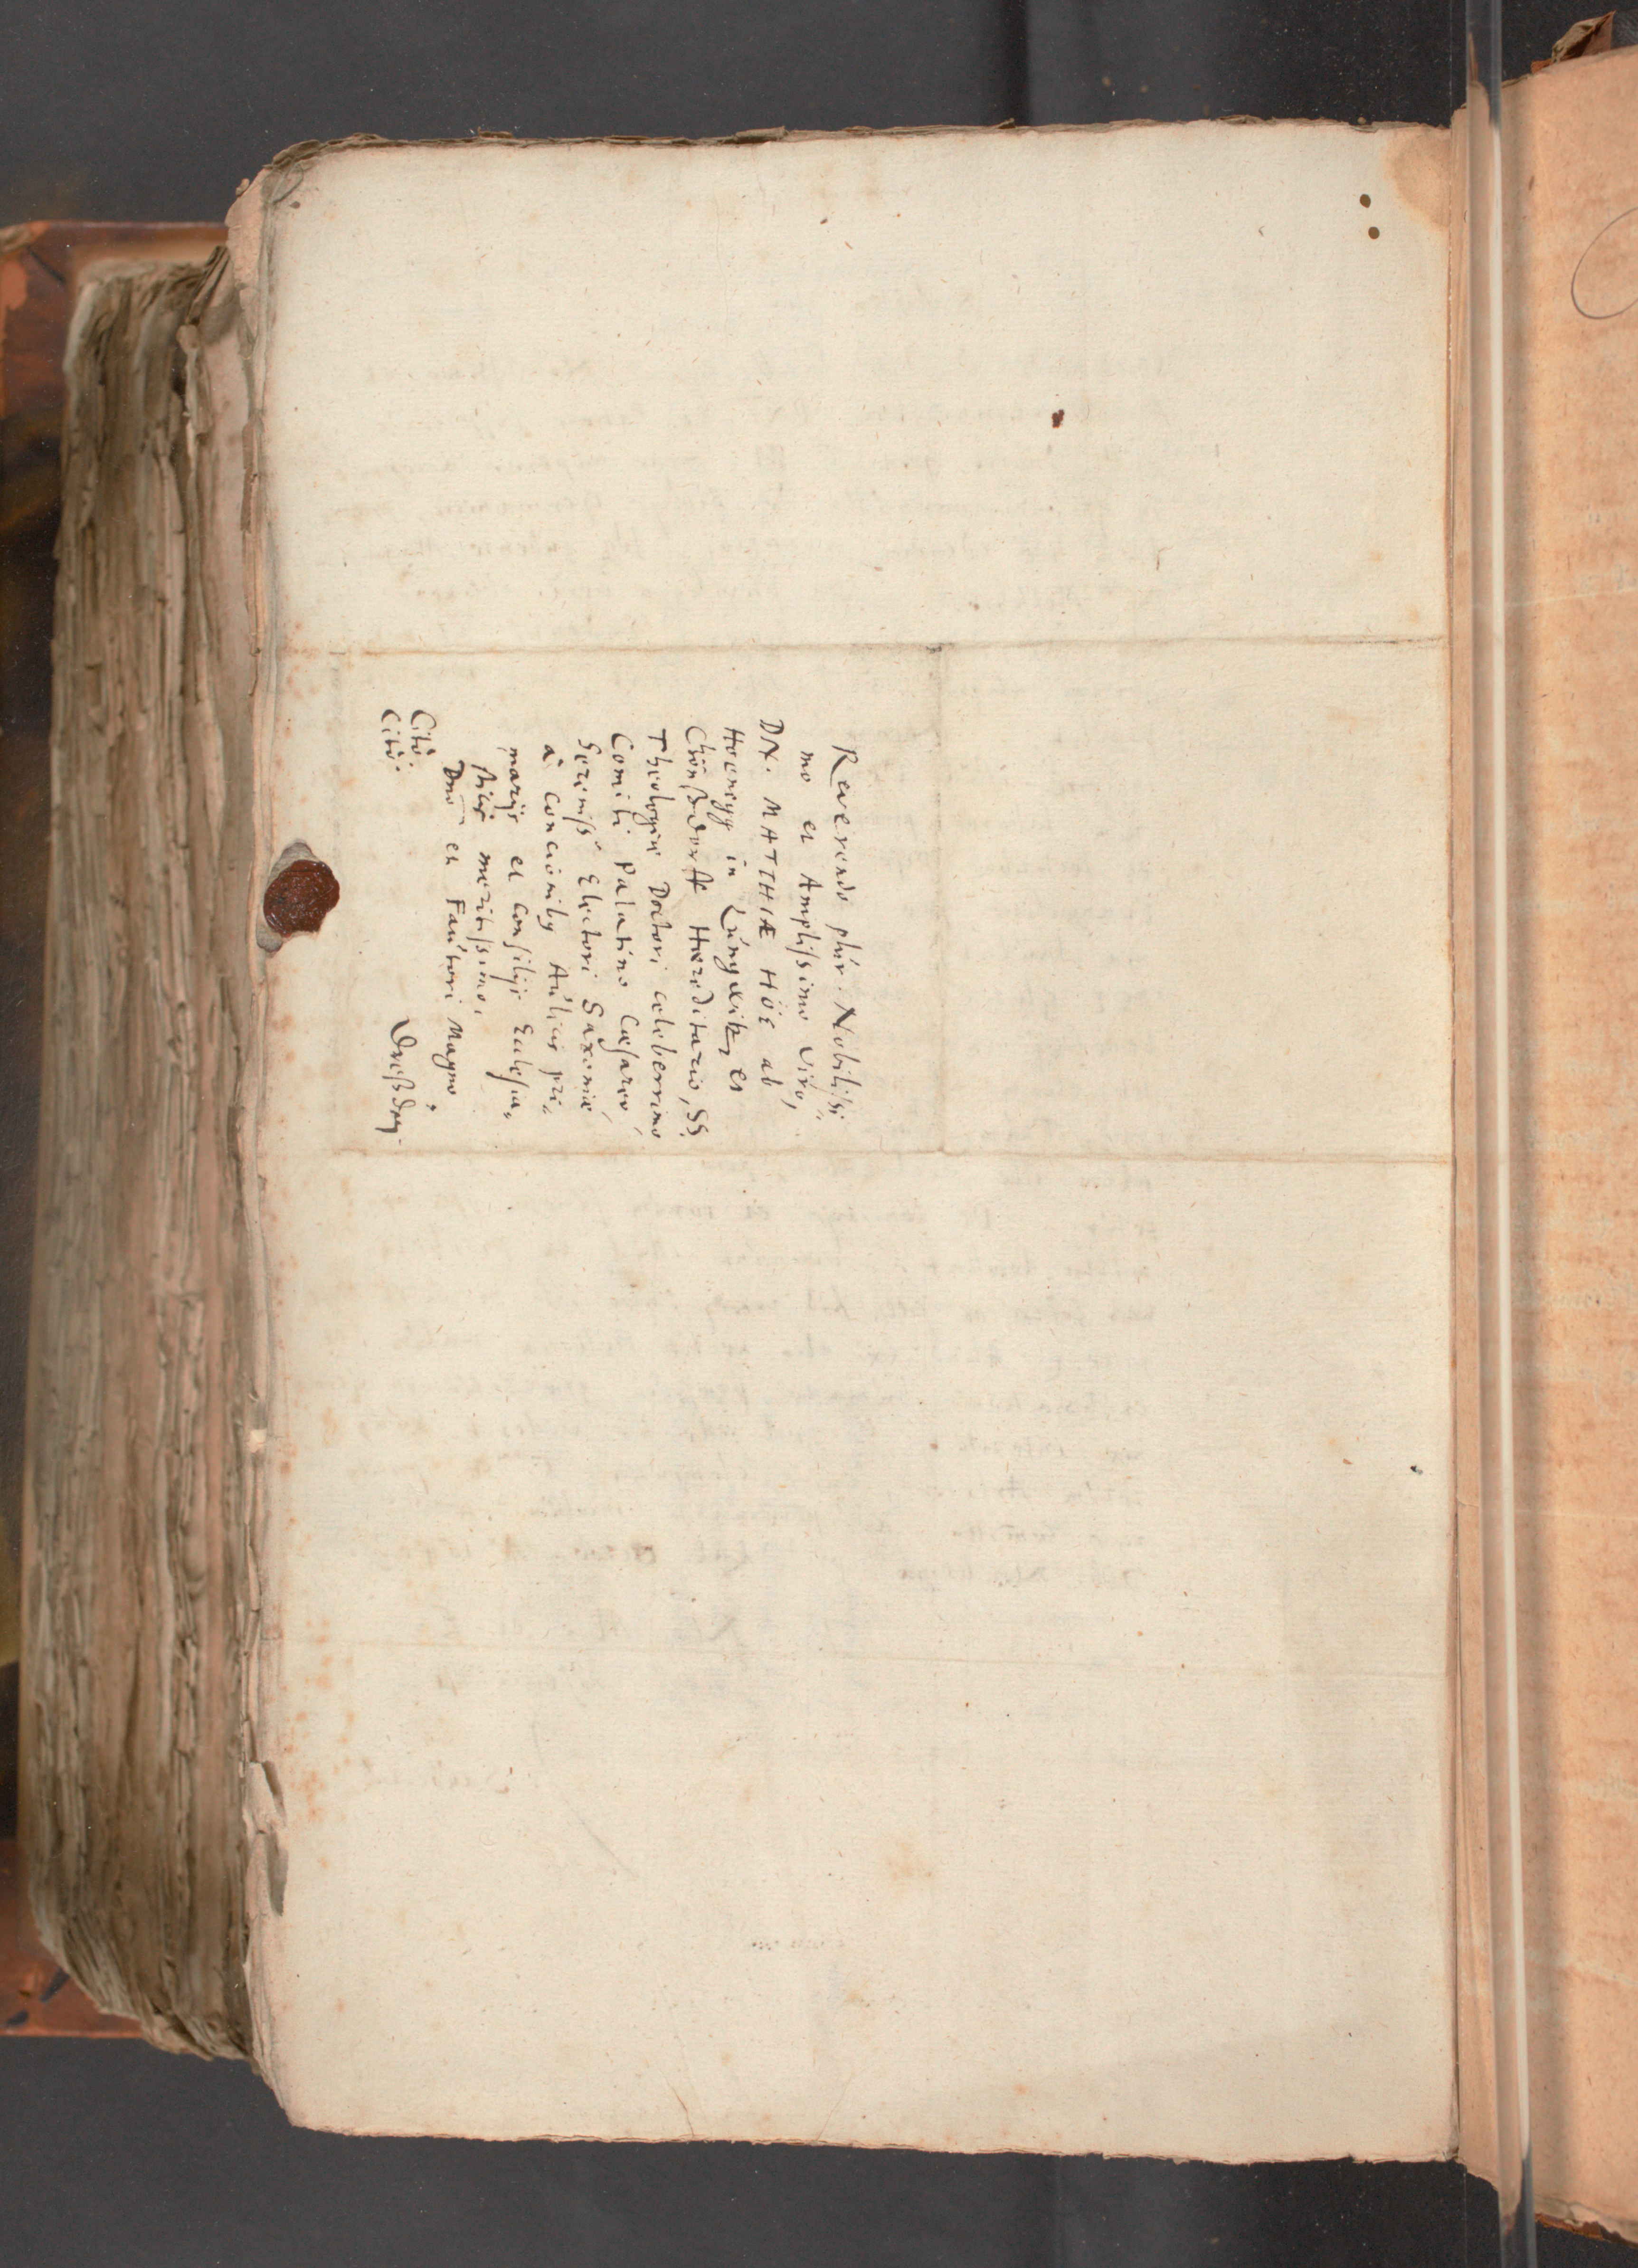 Reverendo plúr. Nobilissi-
mo et Amplissimo Viro,
DN. MATTHIÆ HÖE ab
Hoenegg in Lúngwitz et
Chönßdorff Hæreditario, SS.
Theologiæ Doctori celeberrimo
Comiti Palatino Cæsareo,
Sereniss Electori Saxoniæ
à concionibq Aúlicis pri-
marijs et consilijs Ecclesia-
sticis meritissimo,
Dno et Faútori Magno.
Citò.
Citò.
Dreßden